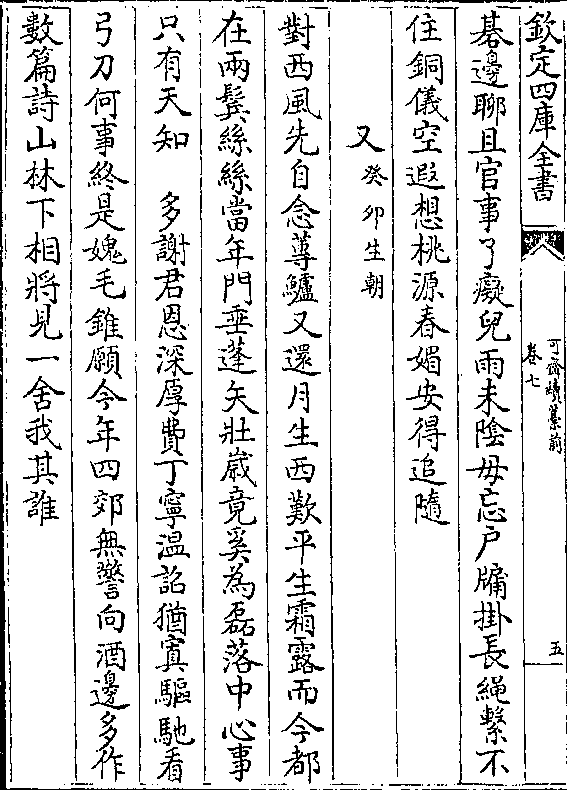 欽定四庫全書
可齋續藁前
卷七
五
碁邊聊且官事了癡兒雨未陰毋忘户牖掛長繩繫不
住銅儀空遐想桃源春媚安得追隨
又癸卯生朝
對西風先自念蓴鱸又還月生西歎平生霜露而今都
在兩鬂絲絲當年門垂蓬矢壯歲竟奚為磊落中心事
只有天知　多謝君恩深厚費丁寧温詔猶寘驅馳看
弓刀何事終是媿毛錐願今年四郊無警向酒邊多作
數篇詩山林下相將見一舍我其誰